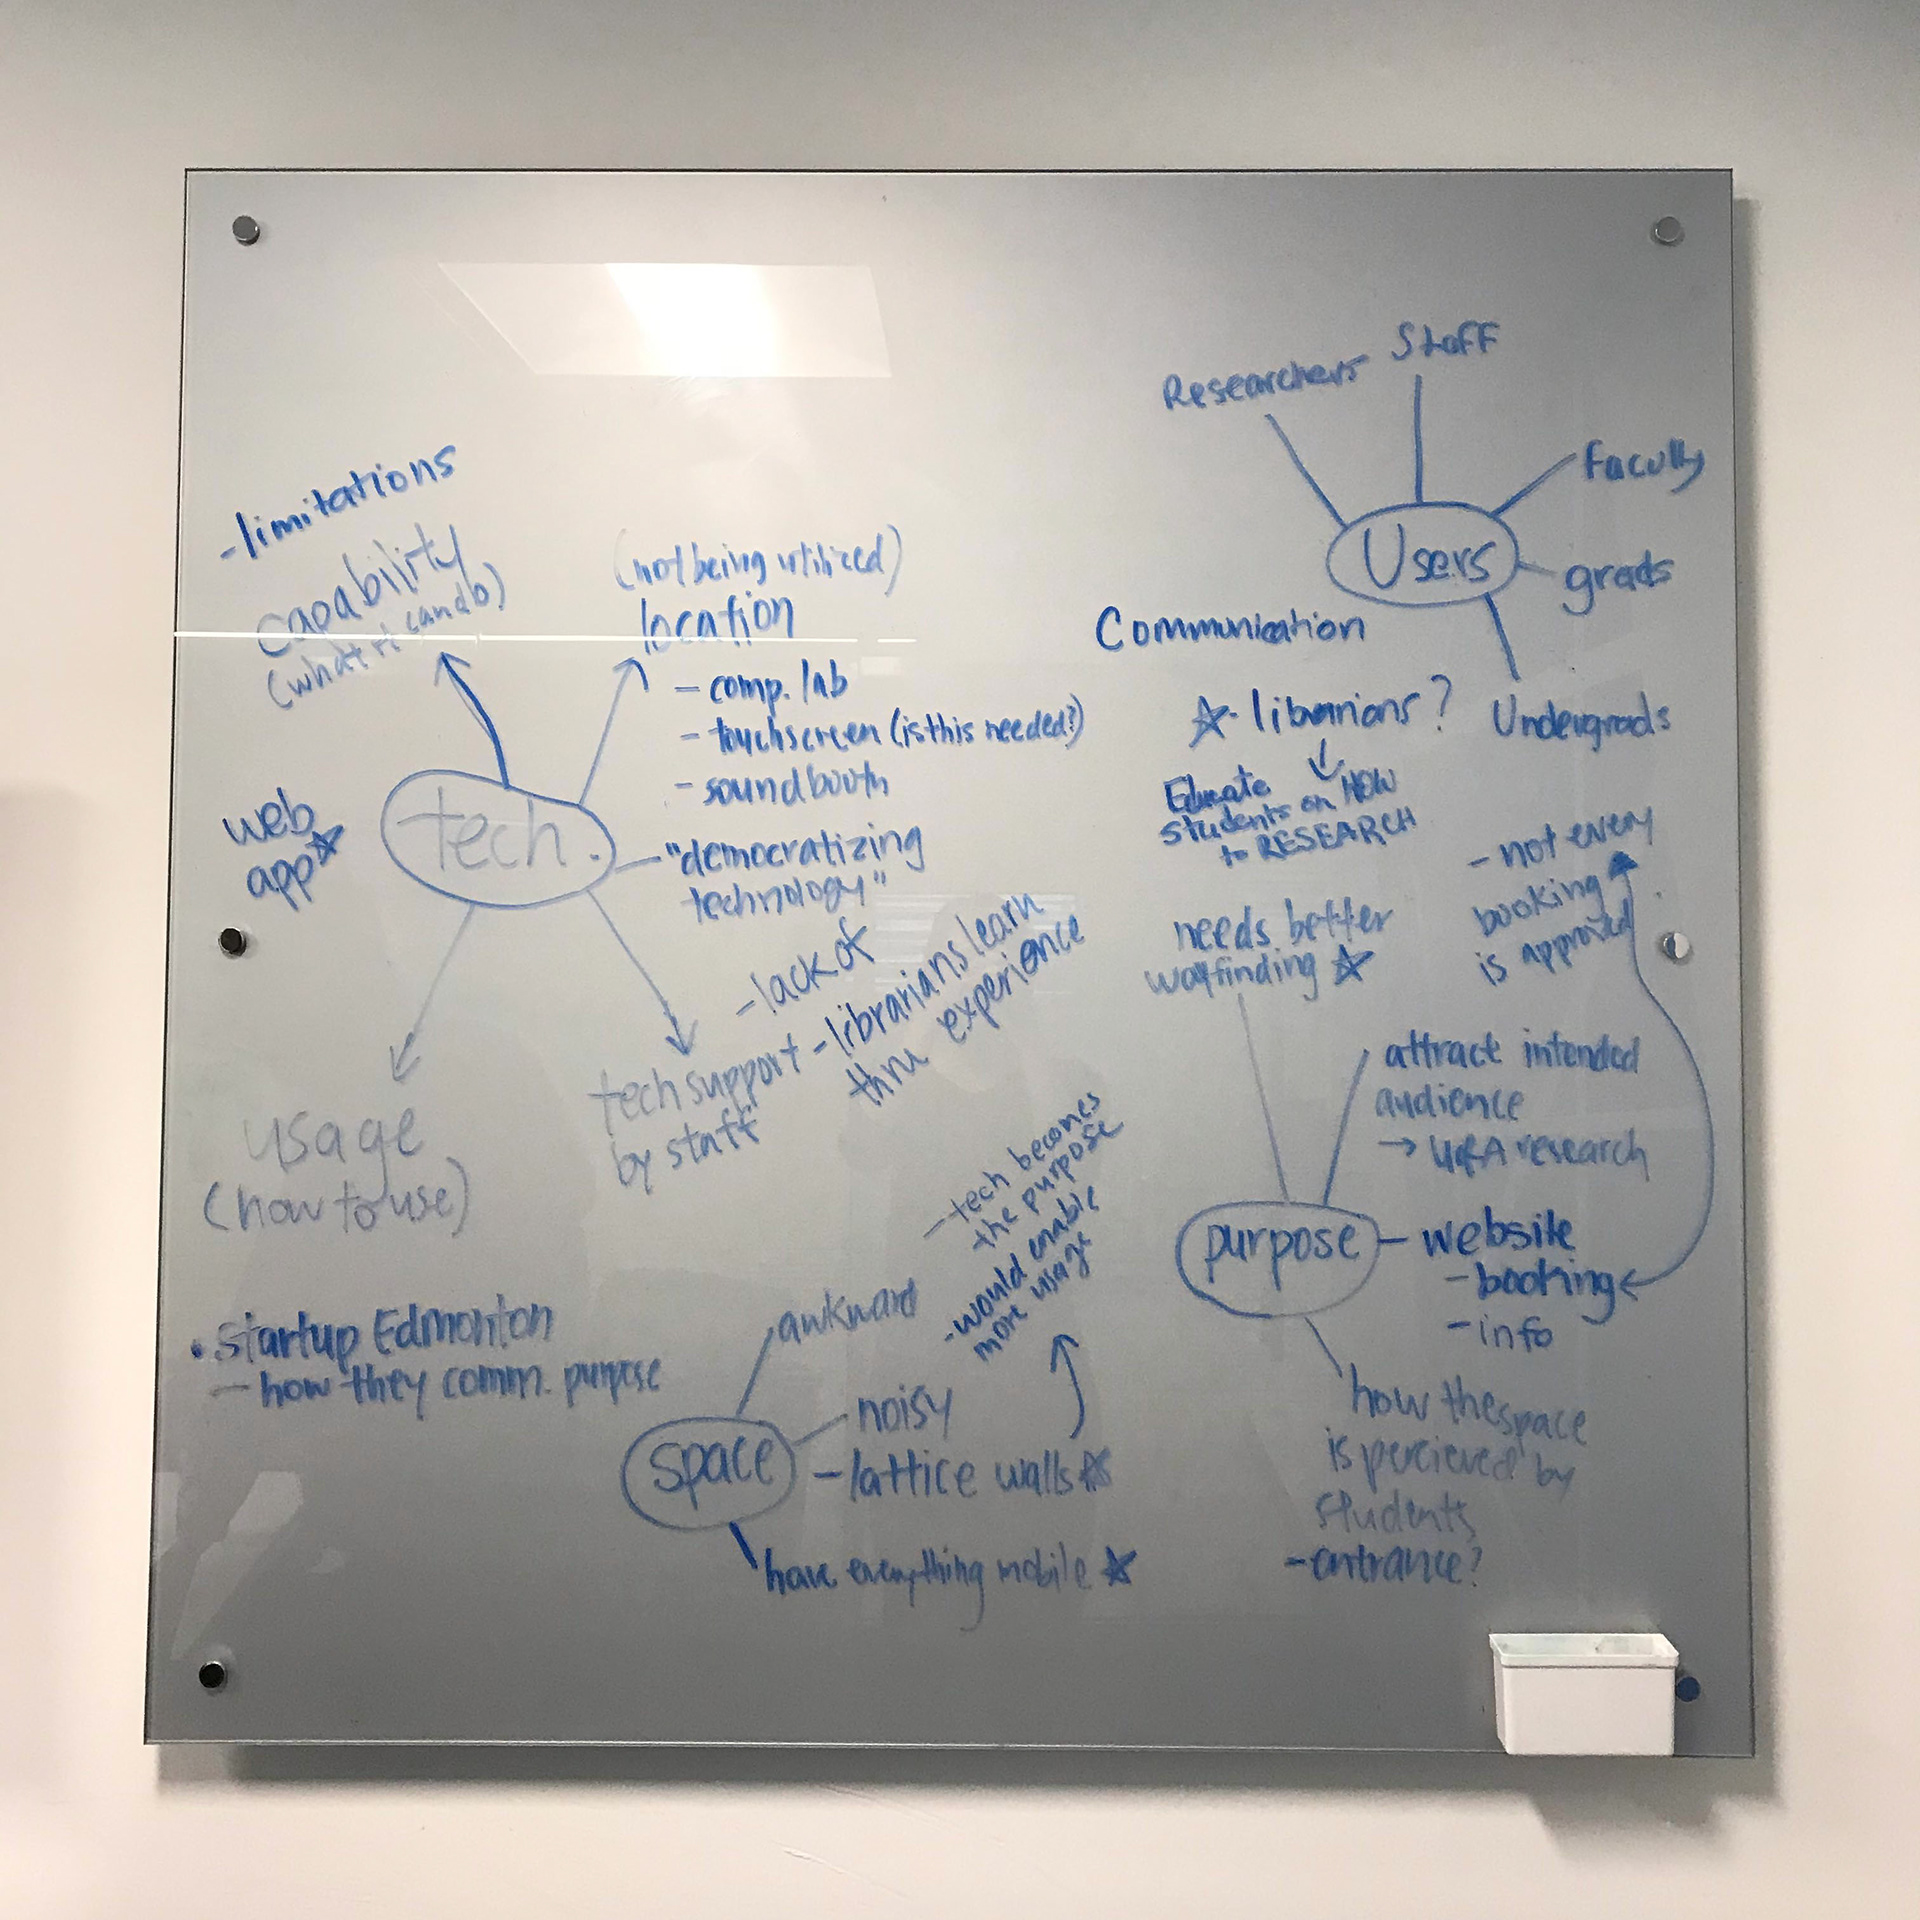 - limitations
capability
(what it can do)
web
app☆
tech.
(not being utilized)
location
- comp. lab
- touchscreen (is this needed?)
- sound booth
"democratizing
technology"
- lack of
tech support
by staff
- librarians learn
thru experience
usage
(how to use)
• Startup Edmonton
- how they comm. purpose
Researchers
Staff
faculty
Users
grads
Undergrads
Communication
☆ - librarians?
↓
Educate
students on HOW
to RESEARCH
- not every
booking
is approved
needs better
wayfinding ☆
attract intended
audience
→ research
purpose
- website
- booking
- info
how the space
is percieved by
students
- entrance?
- tech becomes
the purpose
- would enable
more usage
awkward
noisy
space
- lattice walls ☆
have everything mobile ☆